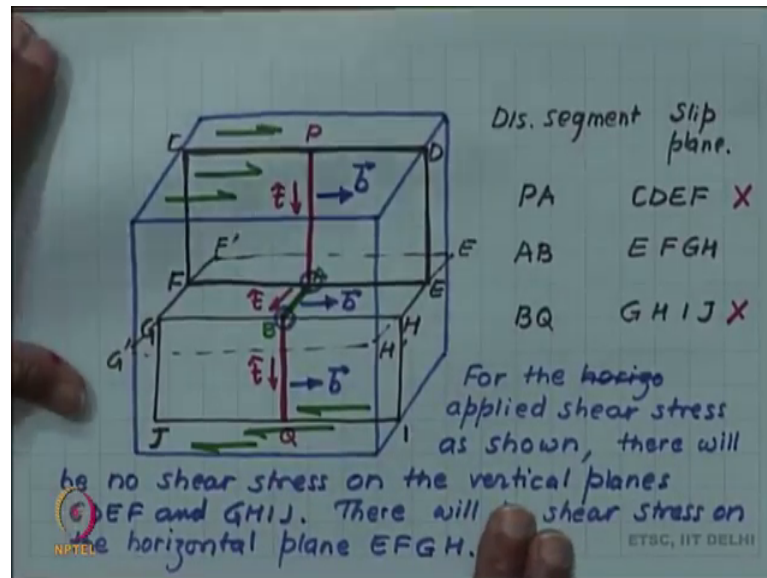 Dis. segment Slip plane.
PA CDEF X
AB EFGH
BQ GHIJ X
C P D
t b
F' E
F A E
t b
G B H
G' H'
t b
J Q I
For the horizo
applied shear stress
as shown, there will
be no shear stress on the vertical planes
CDEF and GHIJ. There will shear stress on
the horizontal plane EFGH.
NPTEL
ETSC, IIT DELHI